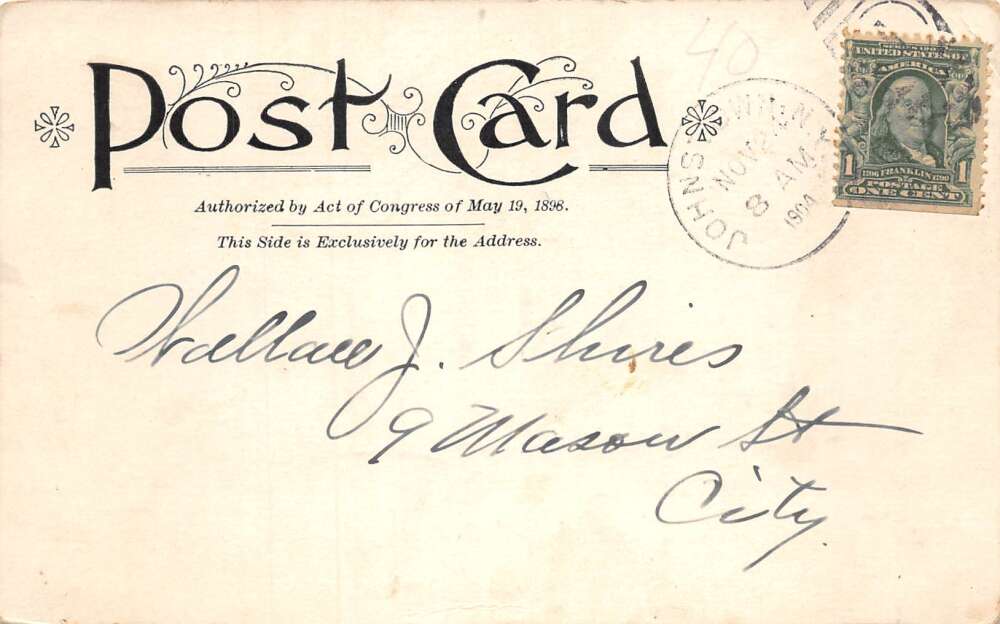 40
Post Card
Authorized by Act of Congress of May 19, 1898.
This Side is Exclusively for the Address.
JOHNSTOWN N.Y.
NOV 2
8 AM
1904
SERIES 1902
UNITED STATES OF
AMERICA
1706 FRANKLIN 1790
POSTAGE
1 ONE CENT
Wallace J. Shires
9 Mason St
City